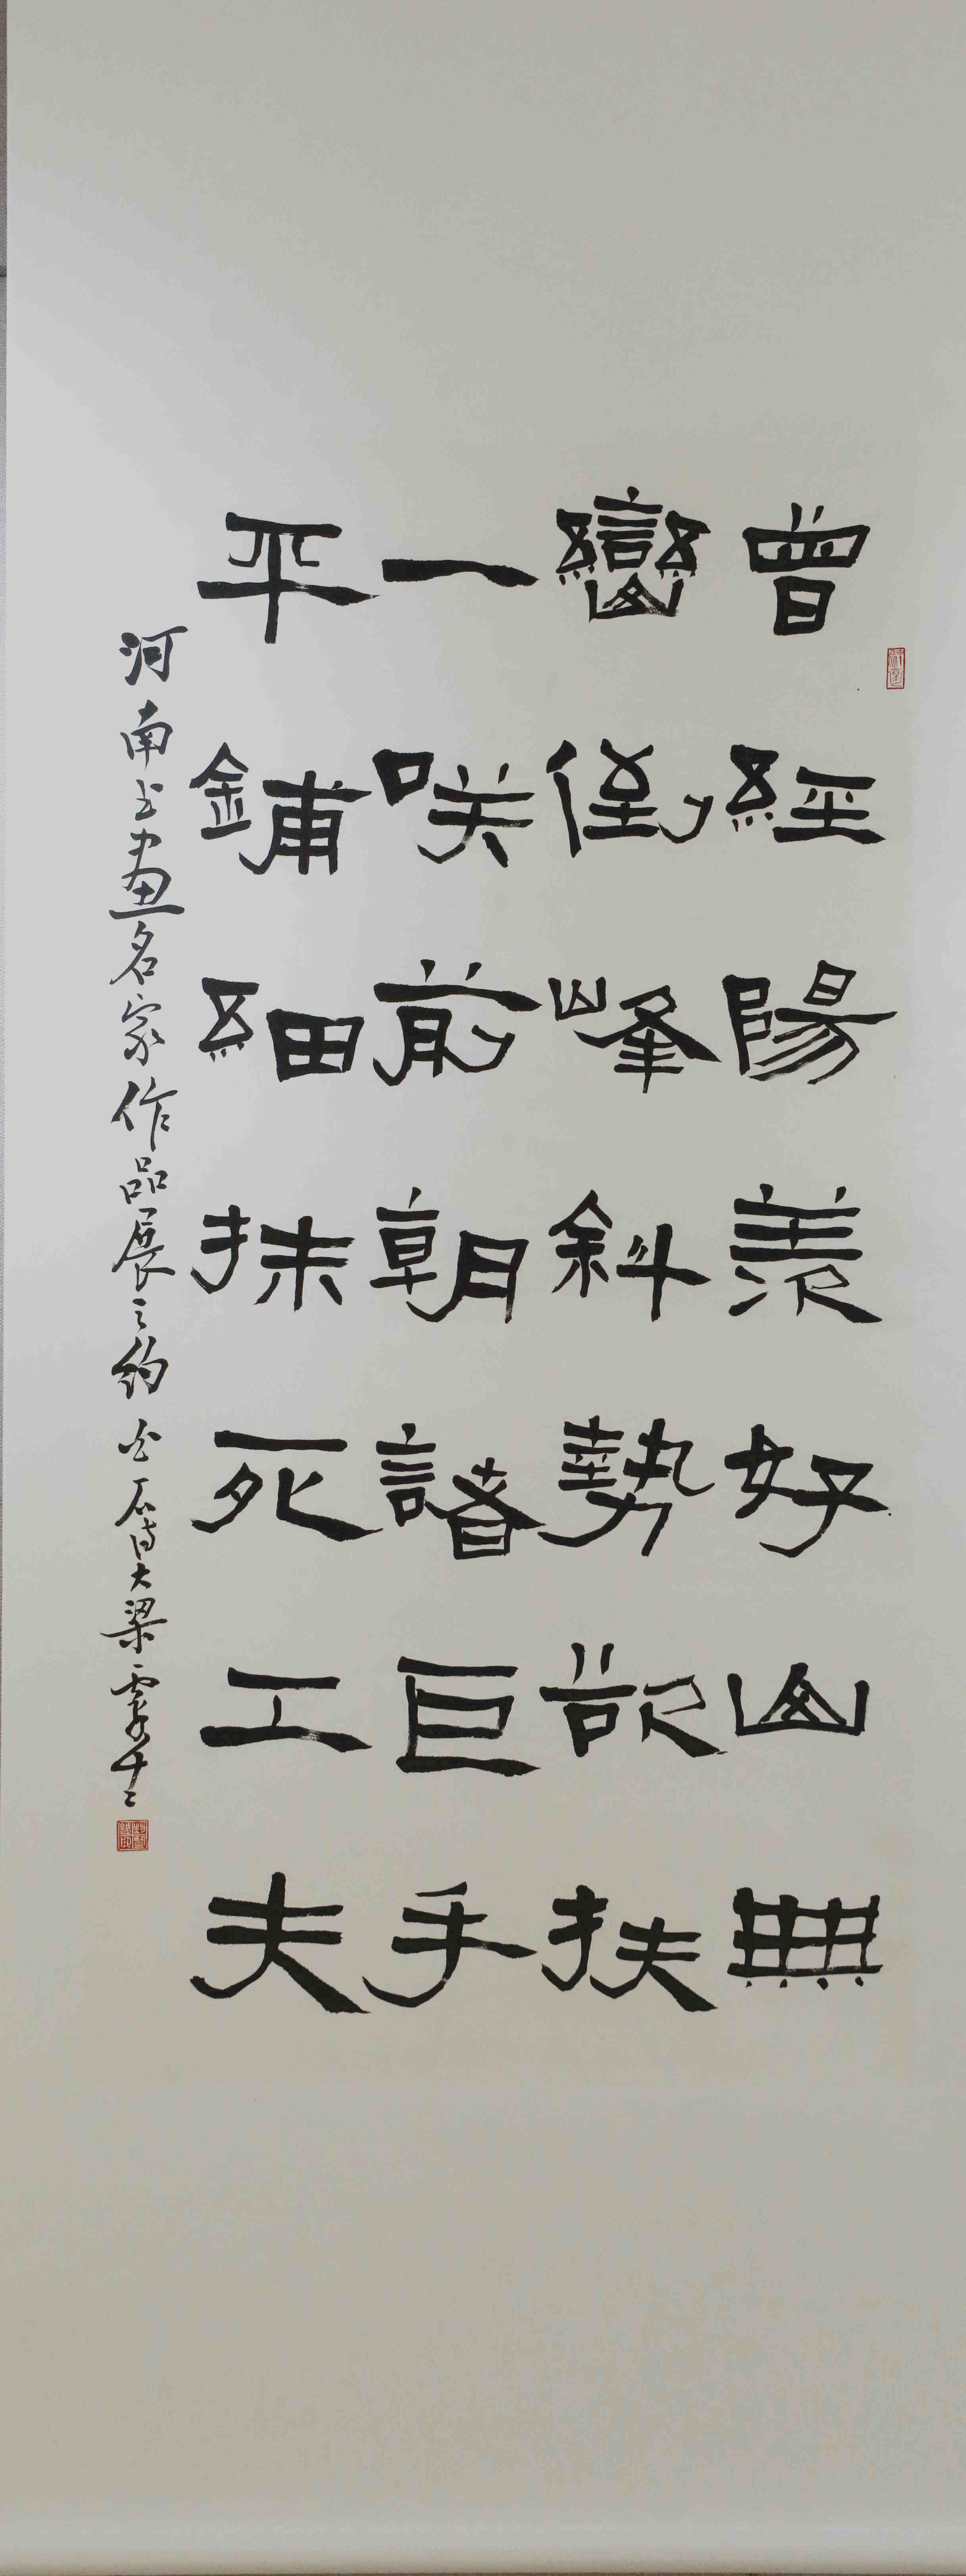 曾經陽羨好山無
巒倒峰斜勢欲扶
一咲前朝諸巨手
平鋪細抹死工夫
河南书畫名家作品展之約 石 大梁